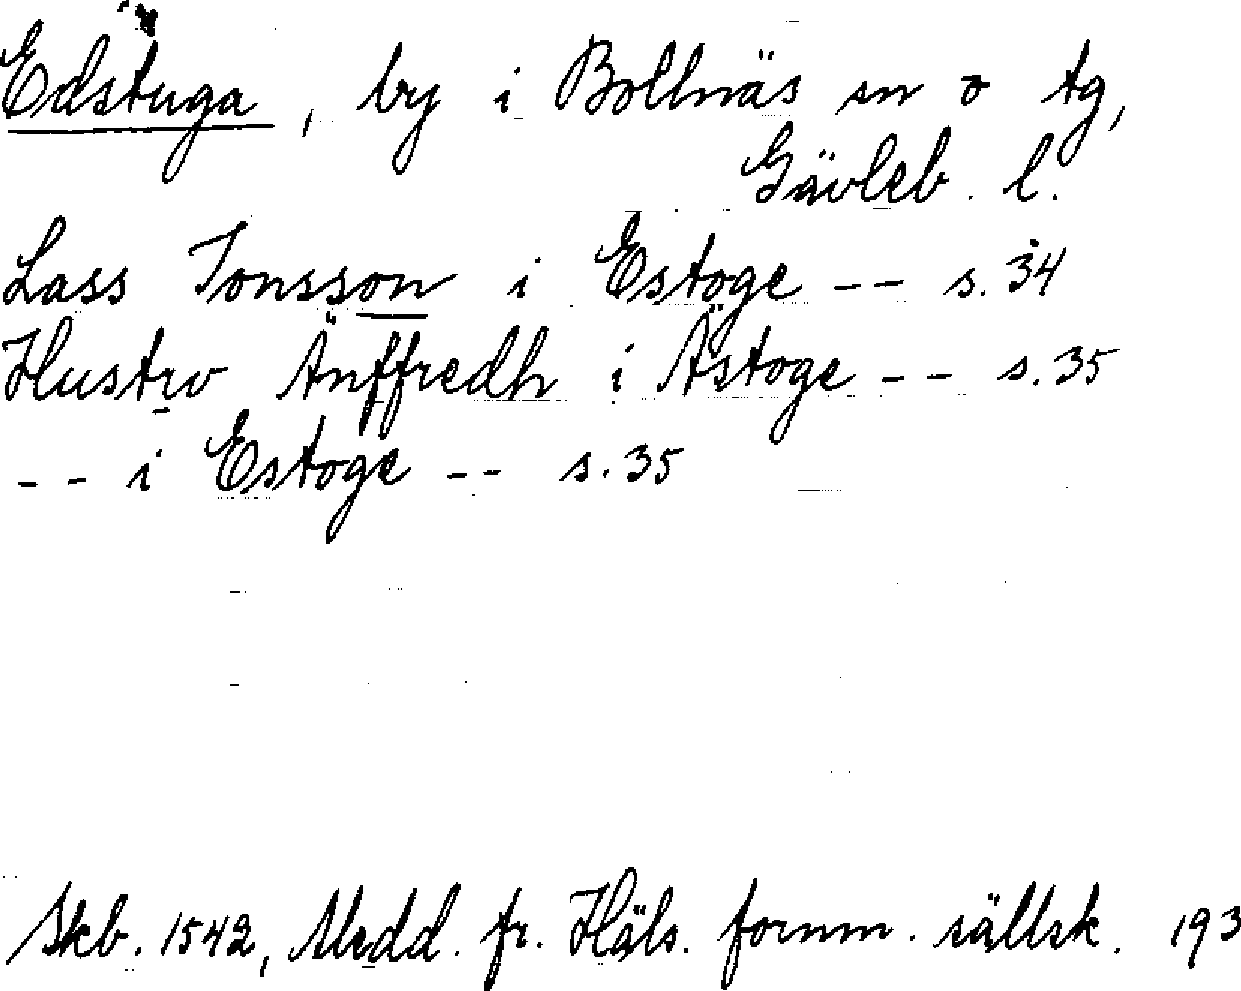 Edstuga, by i Bollnäs sn o tg,
Gävleb. l.
Lass Jonsson i Estoge -- s. 34
Hustrv Änffredh i Ästoge -- s. 35
-- i Estoge -- s. 35
Skb. 1542, Medd. fr. Häls. fornm. sällsk. 193